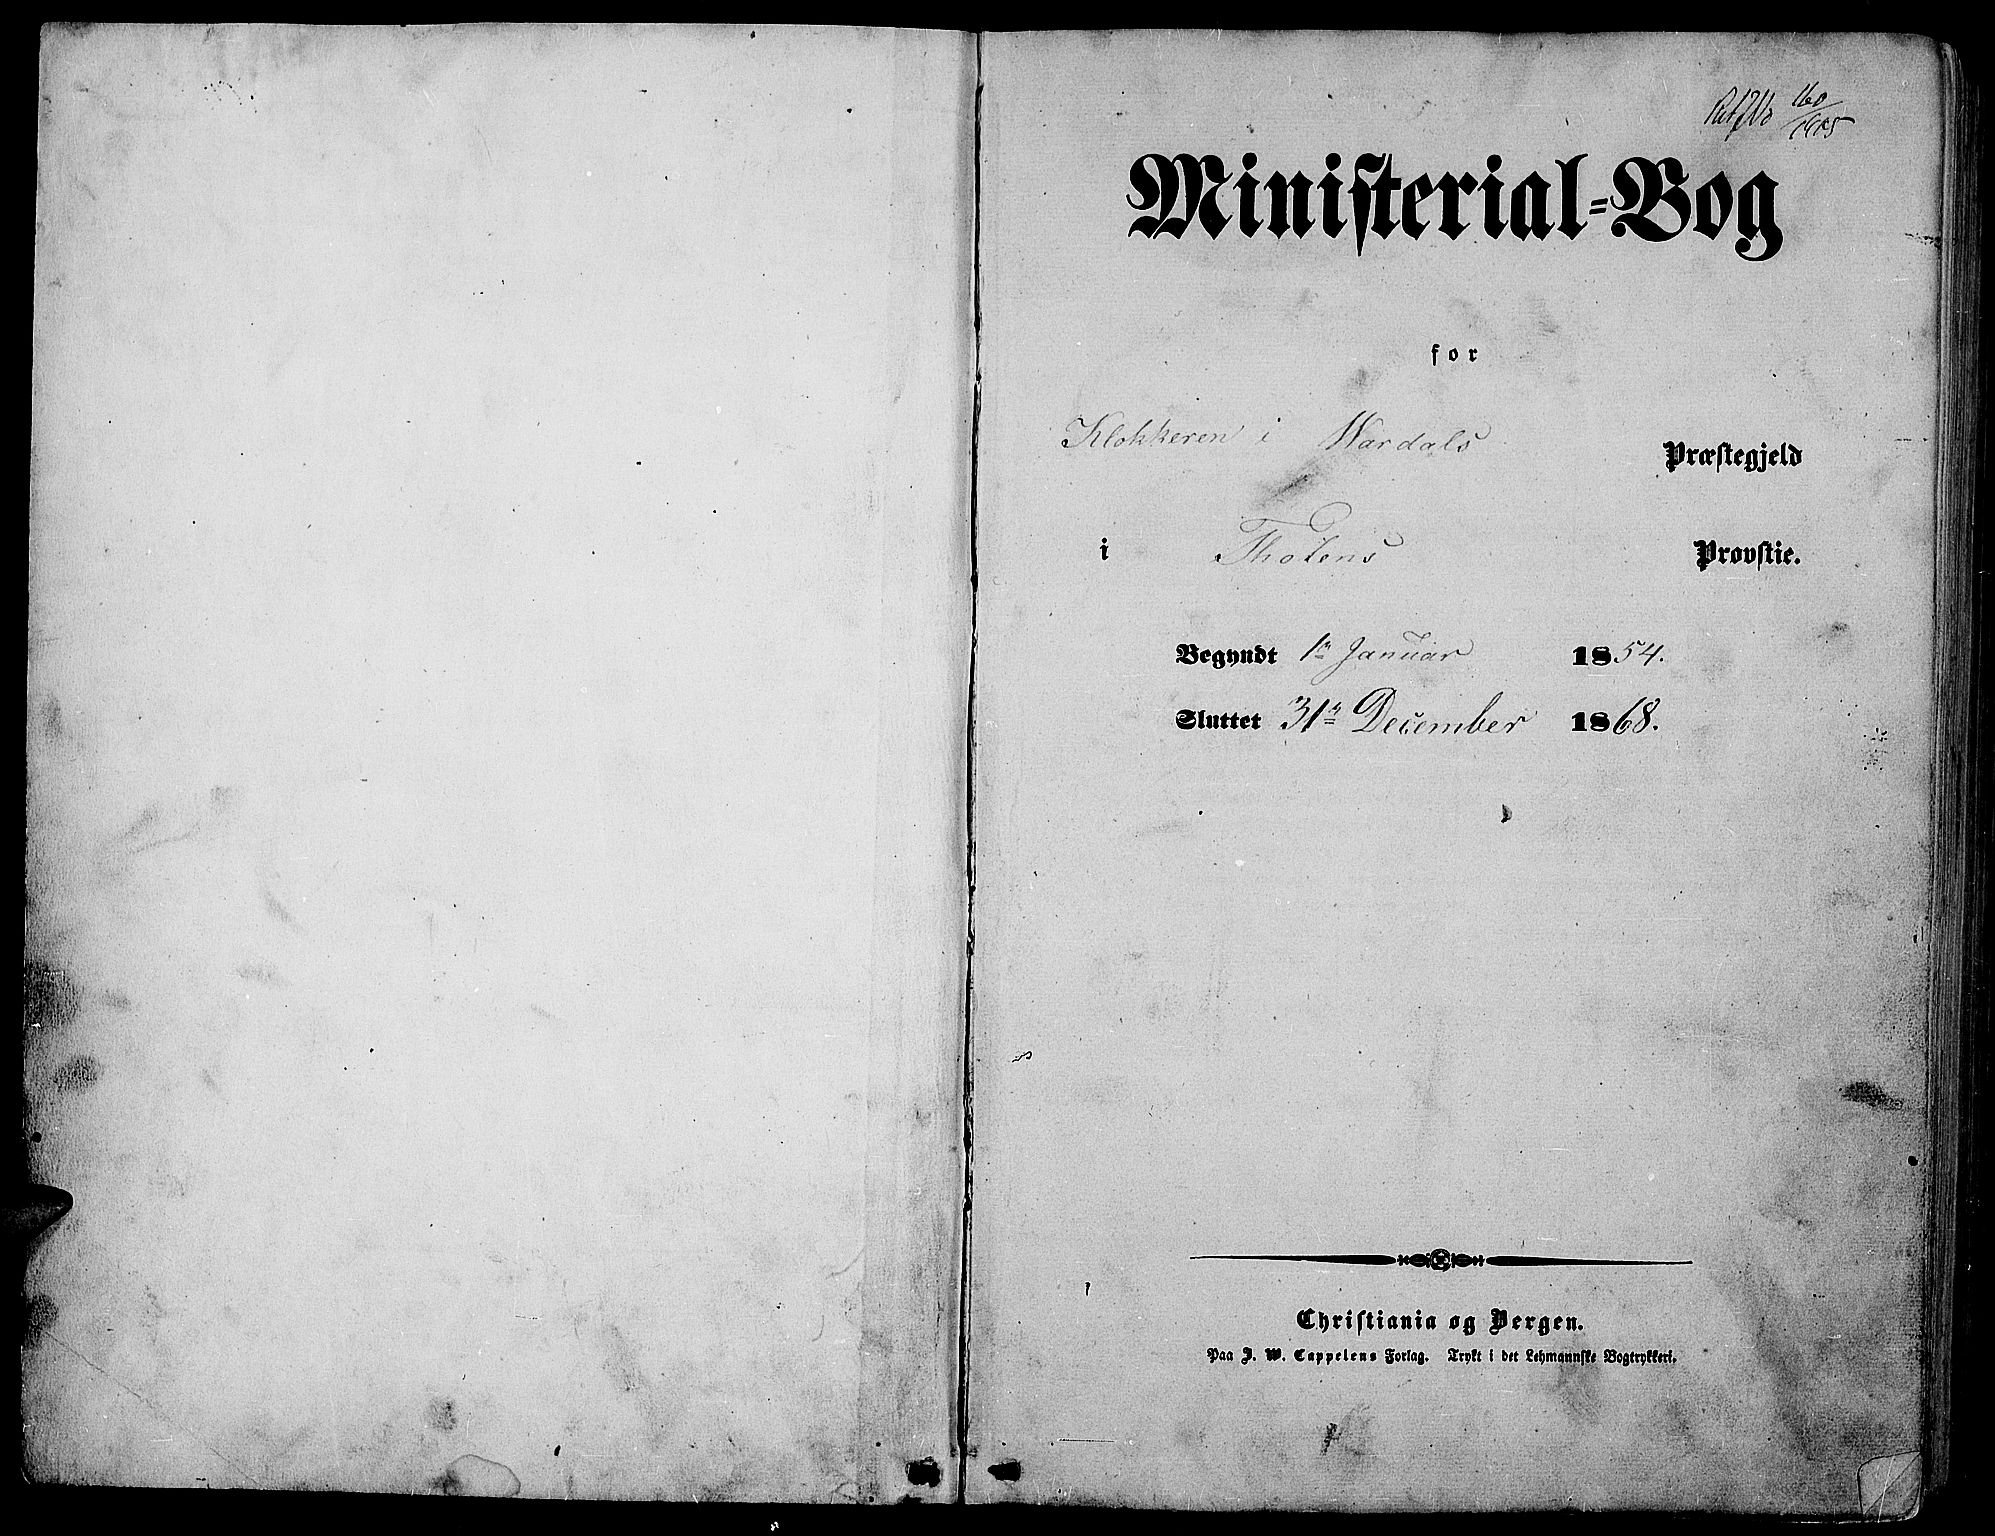 160
Ministerial-Bog
for
Klokkeren i Wardals Præstegjeld
i Thotens Provstie.
Begyndt 1ste Januar 1854.
Sluttet 31te December 1868.
Christiania og Bergen.
Paa J. W. Cappelens Forlag. Trykt i det Lehmannske Bogtrykkeri.